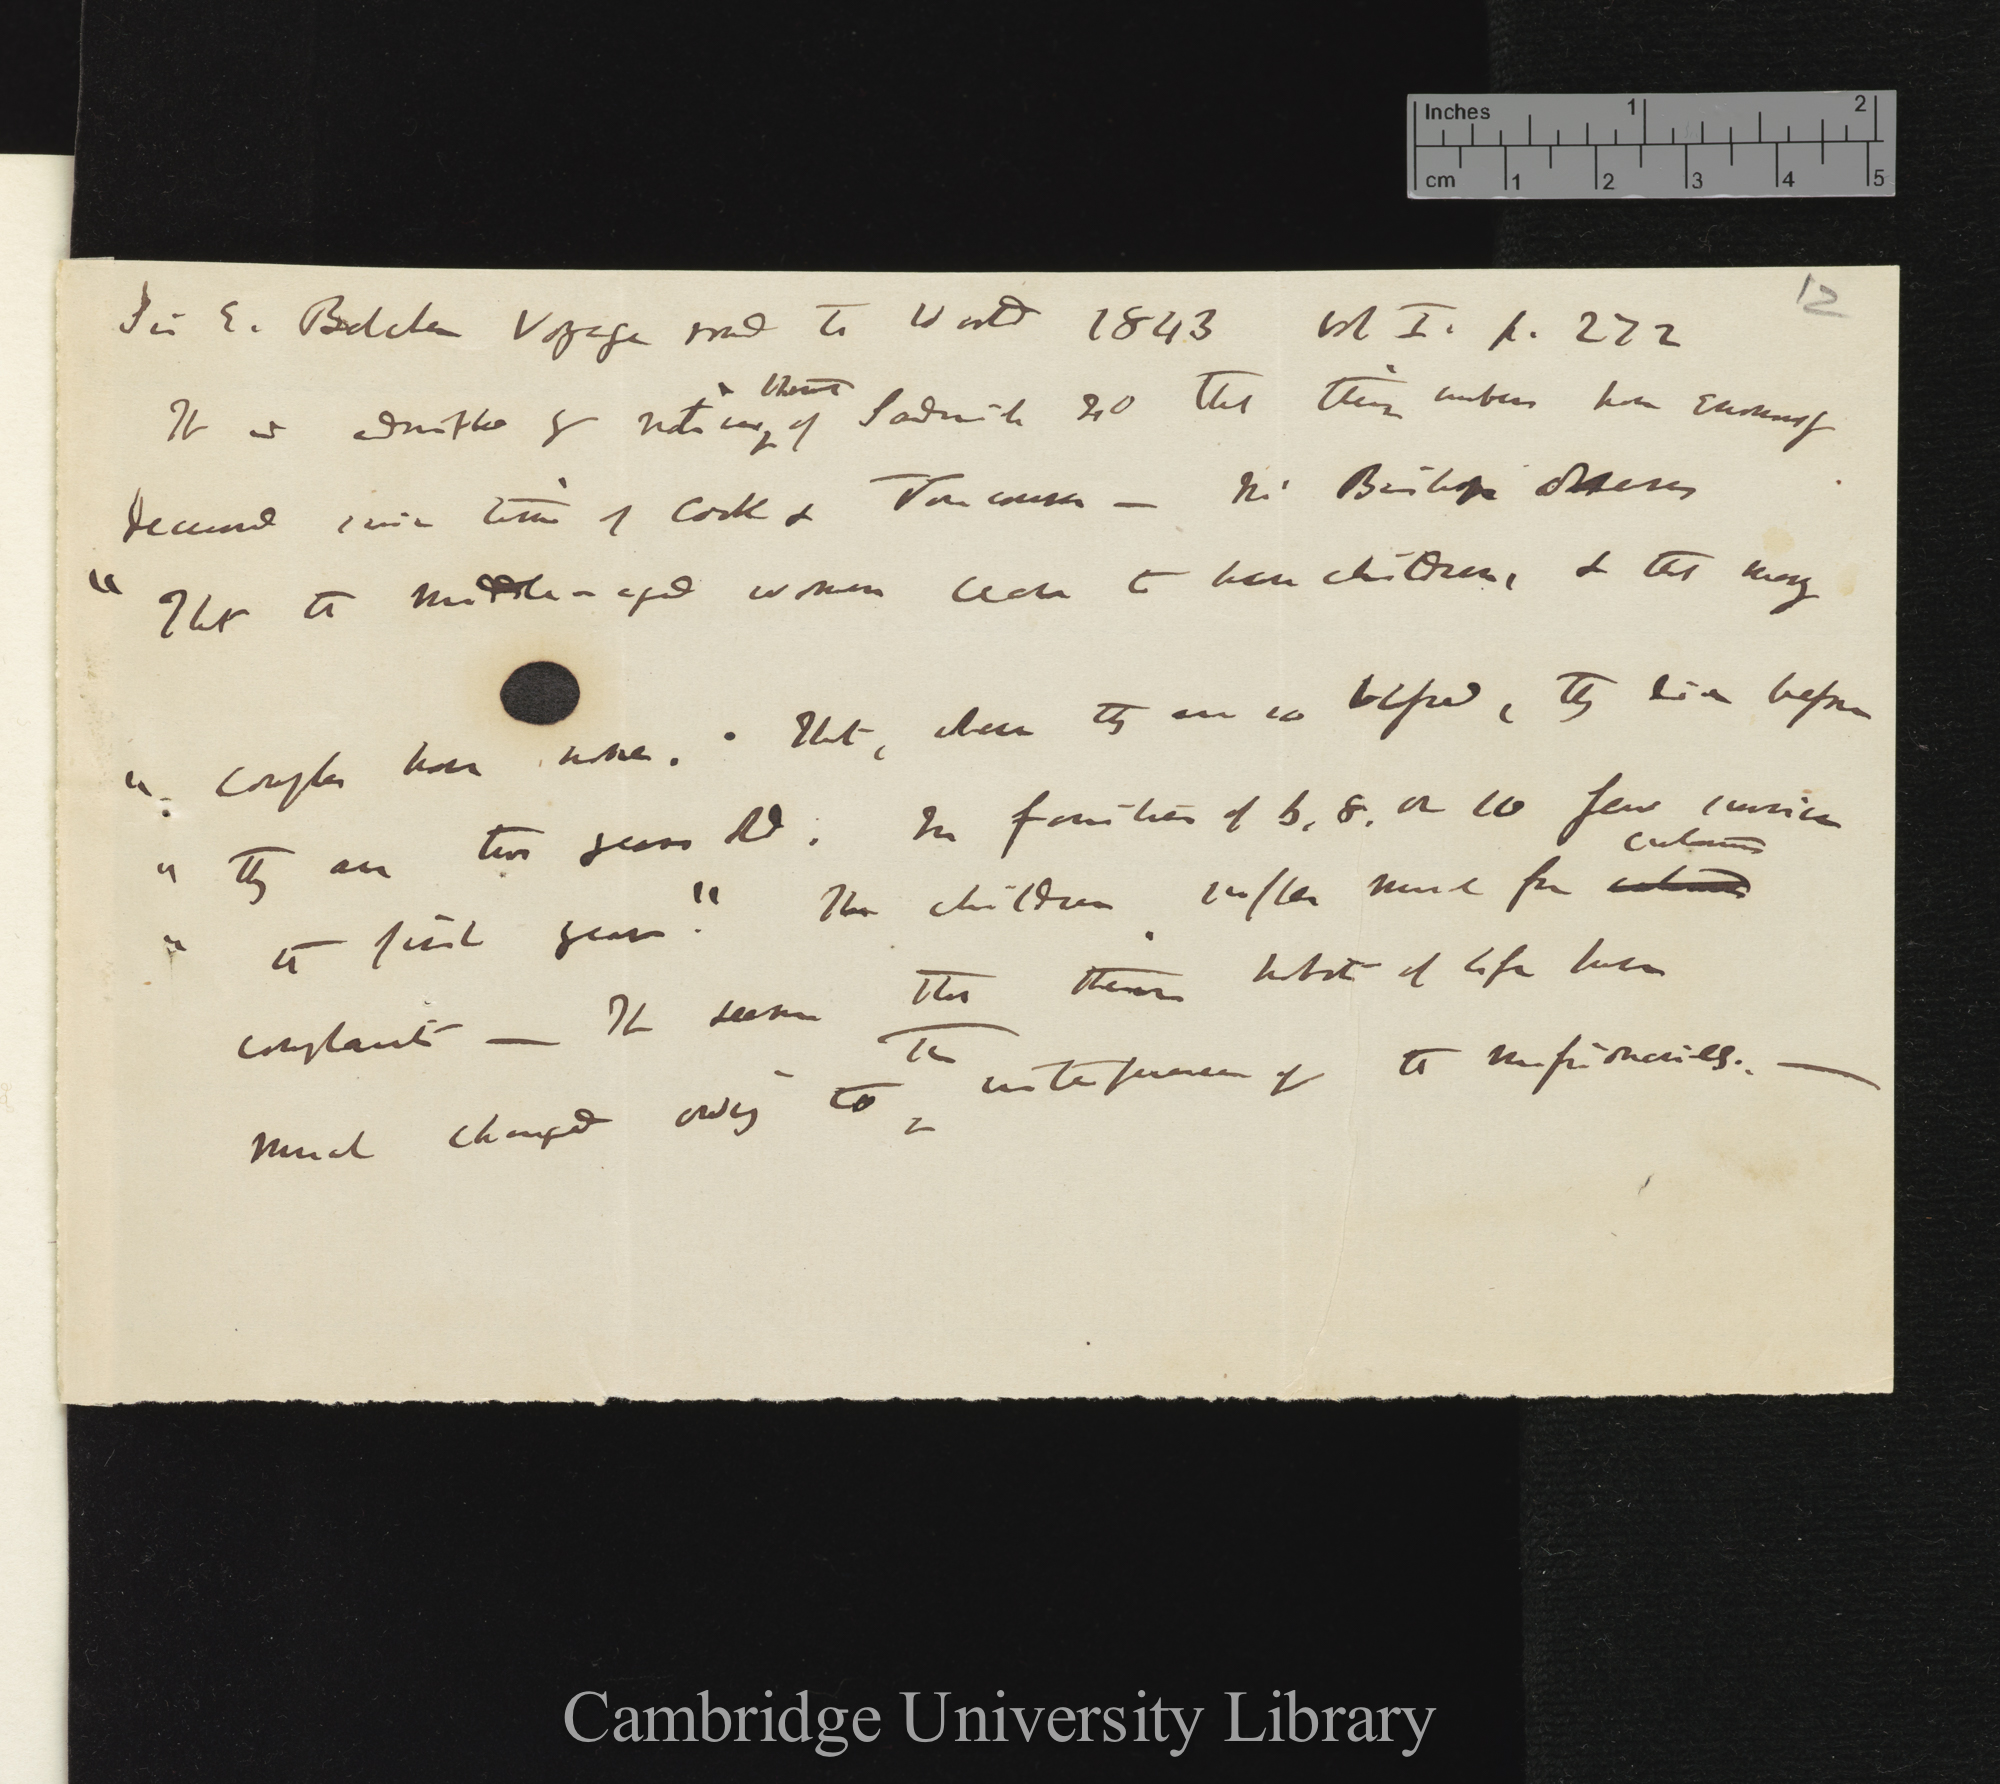 Inches 1 2
cm 1 2 3 4 5
12
Sir E. Belcher Voyage round the World 1843 vol I. p. 272
It is admitted by natives, of Sandwich that their numbers have enormously
decreased since time of Cook & Vancouver — Mr Bishop observes
" That the middle-aged women cease to have children, & that many
" couples have none. That, when they are so blessed, they die before
" they are two years old. In families of 6, 8, or 10 few survive
" the first year." The children suffer much from cutaneous
complaints — It seems that their habits of life have
much changed owing to the interference of the missionaries. —
Cambridge University Library